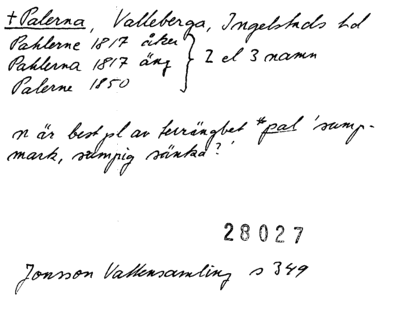 †Palerna, Valleberga, Ingelstads hd
Pahlerne 1817 åker
Pahlerna 1817 äng } 2 el 3 namn
Palerne 1850
n är best pl av terrängbet *pal 'sump-
mark, sumpig sänka?'
28027
Jonsson Vattensamling s 349